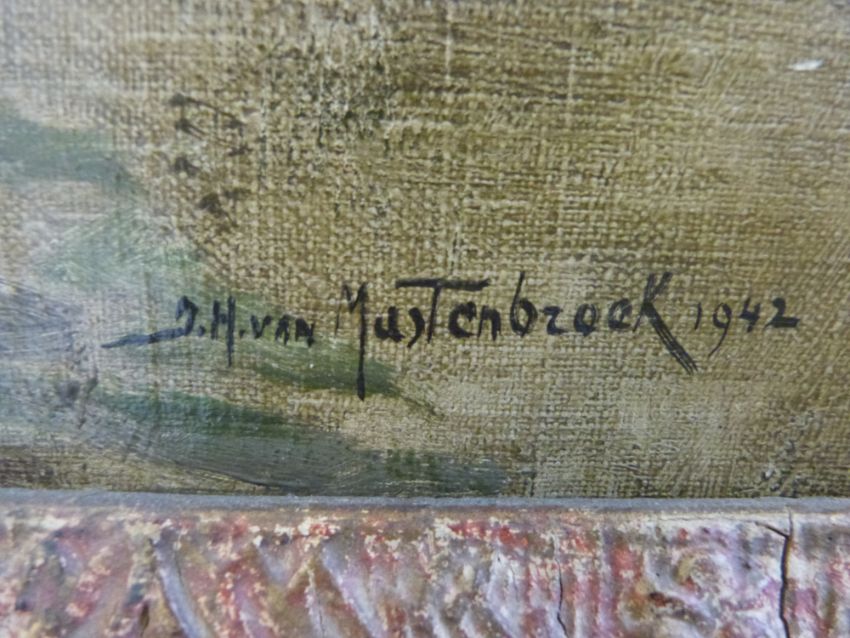 J.H. VAN MasTenbroek 1942